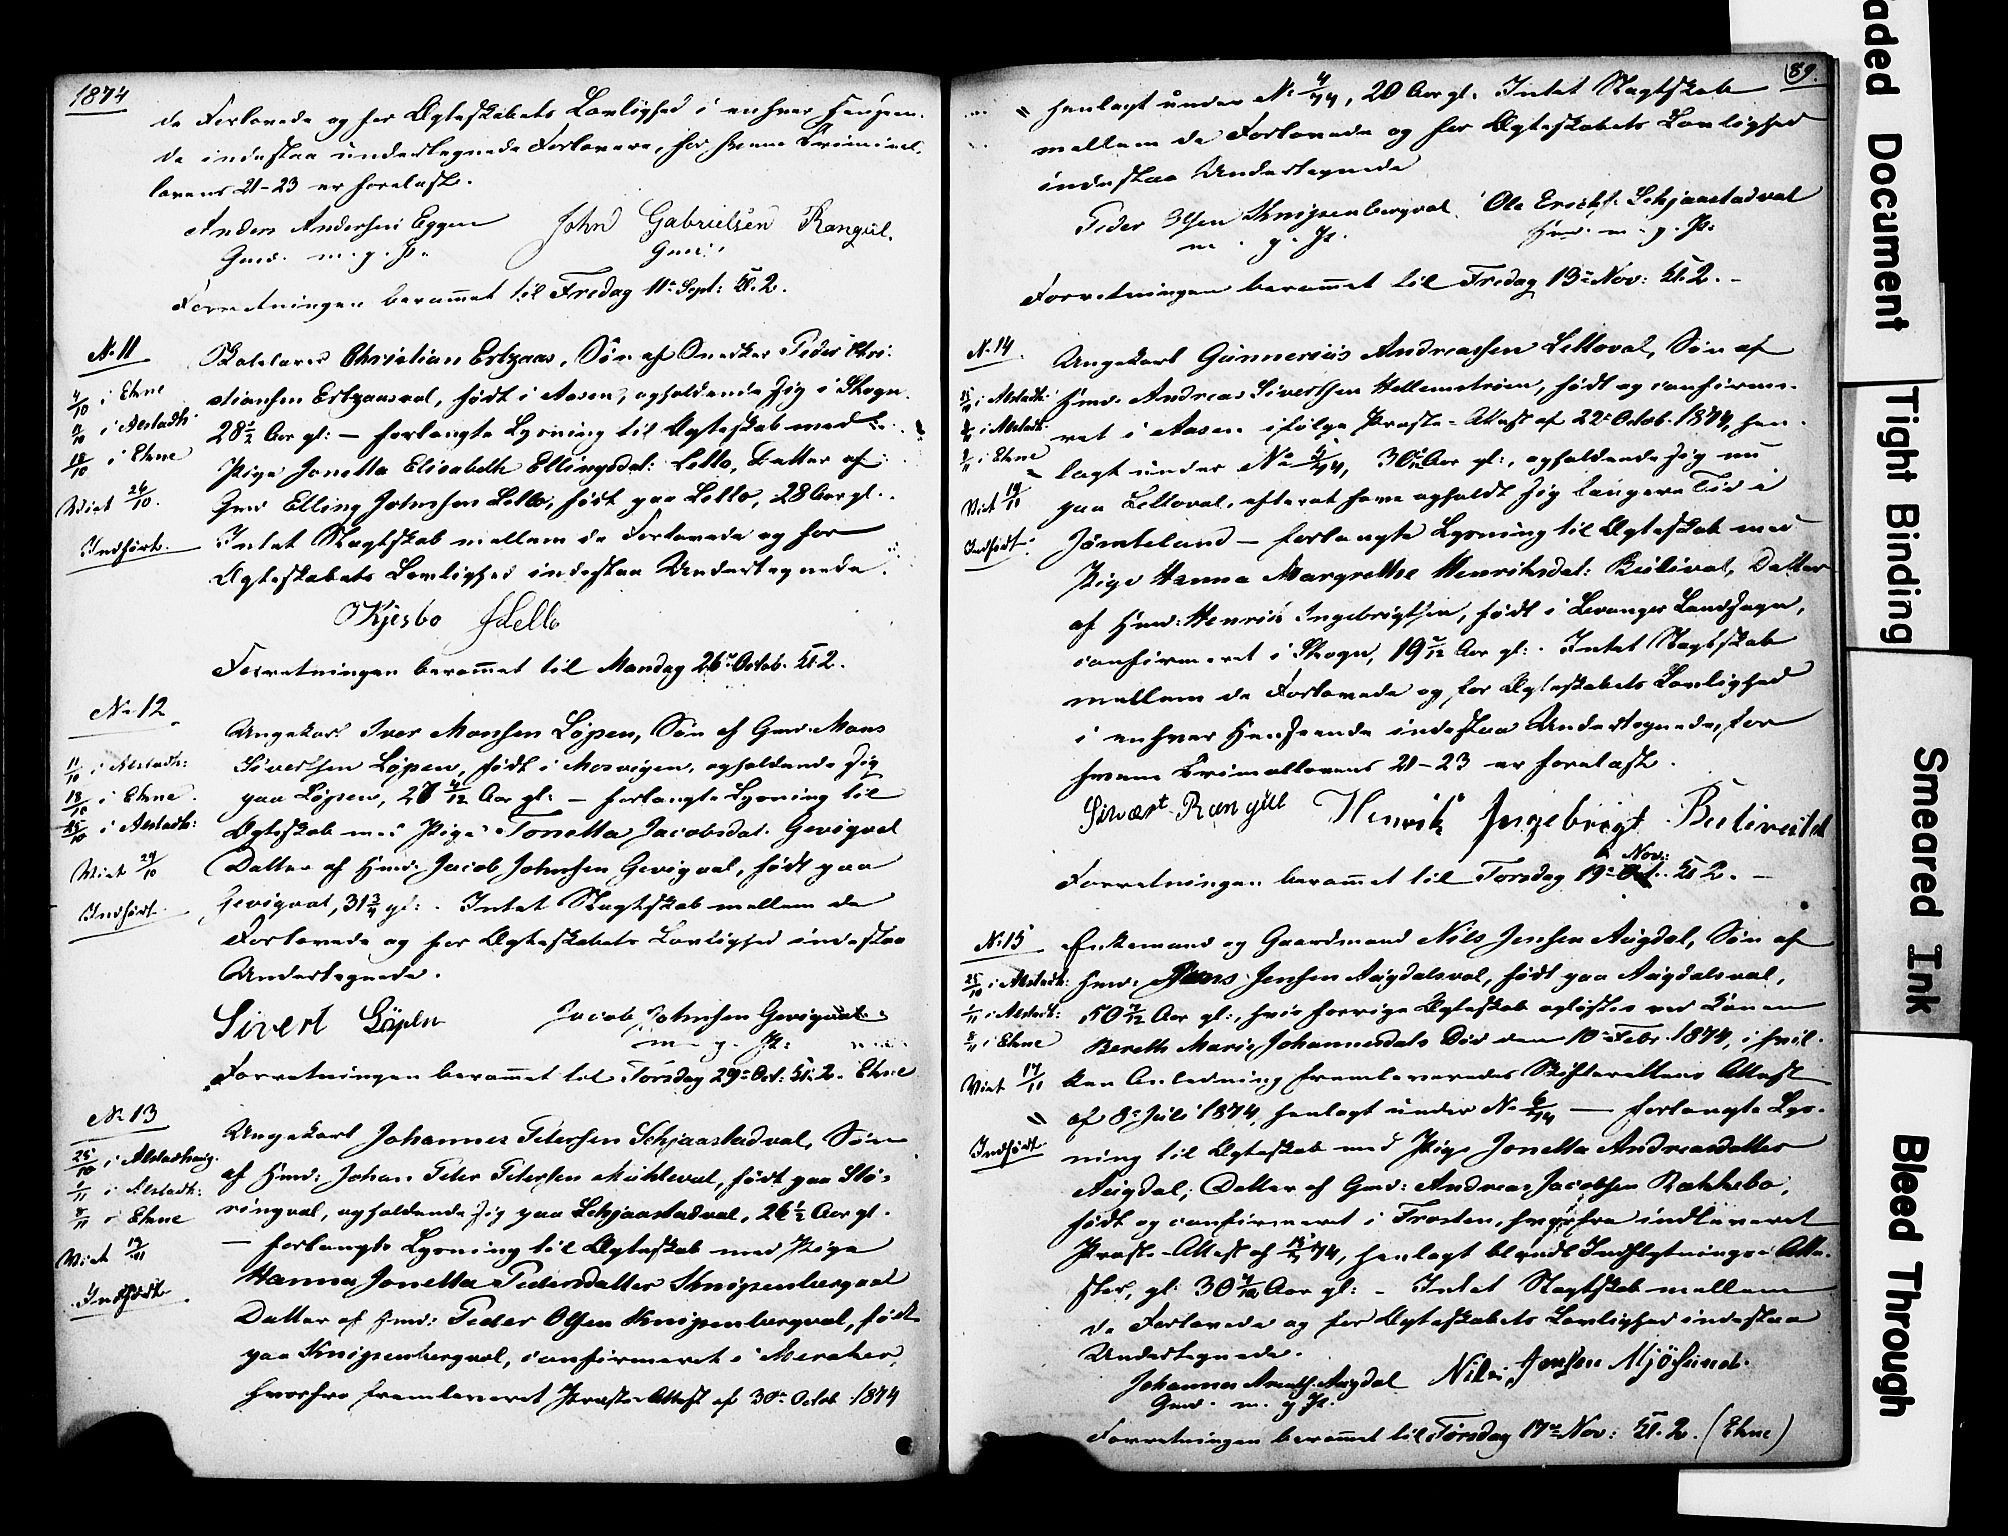 1874
de Forlovede og for Ægteskabets Lovlighed i enhver Henseen-
de indestaa undertegnede Forlovere, for hvem Criminal-
lovens 21-23 er forelæst.
Anders Andersen Eggen John Gabrielsen Rangul.
Gmd. m. p. P. Gmd:
Forretningen berammet til Fredag 11te Sept: Kl. 2.
No 11
4/10 i Ekne
11/10 i Alstadh:
18/10 i Ekne
Viet 26/10.
Indført.
Skolelærer Christian Ertzaas, Søn af Snedker Peder Chri-
stiansen Ertzaasval, født i Aasen, opholdende sig i Skogn
28 1/2 Aar gl: - forlangte Lysning til Ægteskab med
Pige Jonetta Elisabeth Ellingsdat: Lello, Datter af
Gmd Elling Johnsen Lello, født paa Lello, 28 Aar gl.
Intet Slægtskab mellem de Forlovede og for
Ægteskabets Lovlighed indestaa Undertegnede.
OKjesbo JLello
Forretningen berammet til Mandag 26de Octob. Kl. 2.
No 12
11/10 i Alstadh:
18/10 i Ekne
25/10 i Alstadh:
Viet 29/10
Indført.
Ungekarl Iver Monsen Løpen, Søn af Gmd. Mons
Sivertsen Løpen, født i Mosvigen, opholdende sig
paa Løpen, Aar gl: - forlangte Lysning til
Ægteskab med Pige Tonetta Jacobsdat. Gevigval
Datter af Hmd. Jacob Johnsen Gevigval, født paa
Gevigval, 31 3/4 gl: . Intet Slægtskab mellem de
Forlovede og for Ægteskabets Lovlighed indestaa
Undertegnede.
Sivert Löpen Jacob Johnsen Gevigval
m. p. P:
Forretningen berammet til Torsdag 29de Oct: Kl. 2. Ekne
No 13
25/10 i Alstadhoug.
1/11 i Alstadh:
8/11 i Ekne
Viet 13/11
Indført.
Ungekarl Johannes Petersen Schjaastadval, Søn
af Hmd: Johan Peter Petersen født paa Stø-
ringval, opholdende sig paa Schjaastadval, 26 1/2 Aar gl.
- forlangte Lysning til Ægteskab med Pige
Hanna Jonetta Pedersdatter Knipenbergval
Datter af Hmd: Peder Olsen Knipenbergval, født
paa Knipenbergval, confirmeret i Meraker,
hvorfra fremleveret Præste-Attest af 30te Octob. 1874
89.
" henlagt under No 4/74, 20 Aar gl. Intet Slægtskab
mellem de Forlovede og for Ægteskabets Lovlighed
indestaa Undertegnede
Peder Olsen Knipenbergval. Ole Schjaastadval
m. p. P. Hmd. m. p. P:
Forretningen berammet til Fredag 13de Nov: Kl. 2. -
No 14.
25/10 i Alstadh:
1/11 i Alstadh:
8/11 i Ekne
Viet 19/11
Indført.
Ungekarl Gunnerius Andreassen Lelloval, Søn af
Hmd. Andreas Sivertsen Hellemstrøen, født og confirme-
ret i Aasen ifølge Præste-Attest af 22de Octob. 1874, hen-
lagt under No 5/74, Aar gl:, opholdende sig nu
paa Lelloval, efterat have opholdt sig længere Tid i
Jæmteland - forlangte Lysning til Ægteskab med
Pige Hanna Margrethe Henriksdat: Butival, Datter
af Hmd: Henrik Ingebrigtsen, født i Levanger Landsogn,
confirmeret i Skogn, Aar gl: . Intet Slægtskab
mellem de Forlovede og for Ægteskabets Lovlighed
i enhver Henseende indestaa Undertegnede, for
hvem Crimallovens 21-23 er forelæst.
Sivært Rangull Henrik Ingebrigt
Nov:
Forretningen berammet til Torsdag 19de Kl 2. -
No 15
25/10 i Alstadh:
1/11 i Alstadh:
8/11 i Ekne
Viet 17/11
Indført.
Enkemand og Gaardmand Nils Jensen Augdal, Søn af
Hmd: Jens Jensen Augdalsval, født paa Augdalsval,
Aar gl:, hvis forrige Ægteskab opløstes ved Konen
Bereth Marie Johannesdats Død den 10de Febr. 1874, i hvil-
ken Anledning fremleveredes Skifterettens Attest
" af 8de Juli 1874, henlagt under No 6/74 - forlangte Lys-
ning til Ægteskab med Pige Jonetta Andreasdatter
Augdal, Datter af Gmd: Andreas Jacobsen Rækkebo,
født og confirmeret i Frosten, hvorfra indleveret
Præste-Attest af henlagt blandt Indflytnings-Atte-
ster, gl: Aar gl: . Intet Slægtskab mellem
de Forlovede og for Ægteskabets Lovlighed indestaa
Undertegnede.
Johannes Augdal Nils Jensen Mjösund.
Gmd. m. p. P.
Forretningen berammet til Torsdag 17de Nov: Kl. 2. (Ekne)
aded Document
Tight Binding
Smeared Ink
Bleed Through